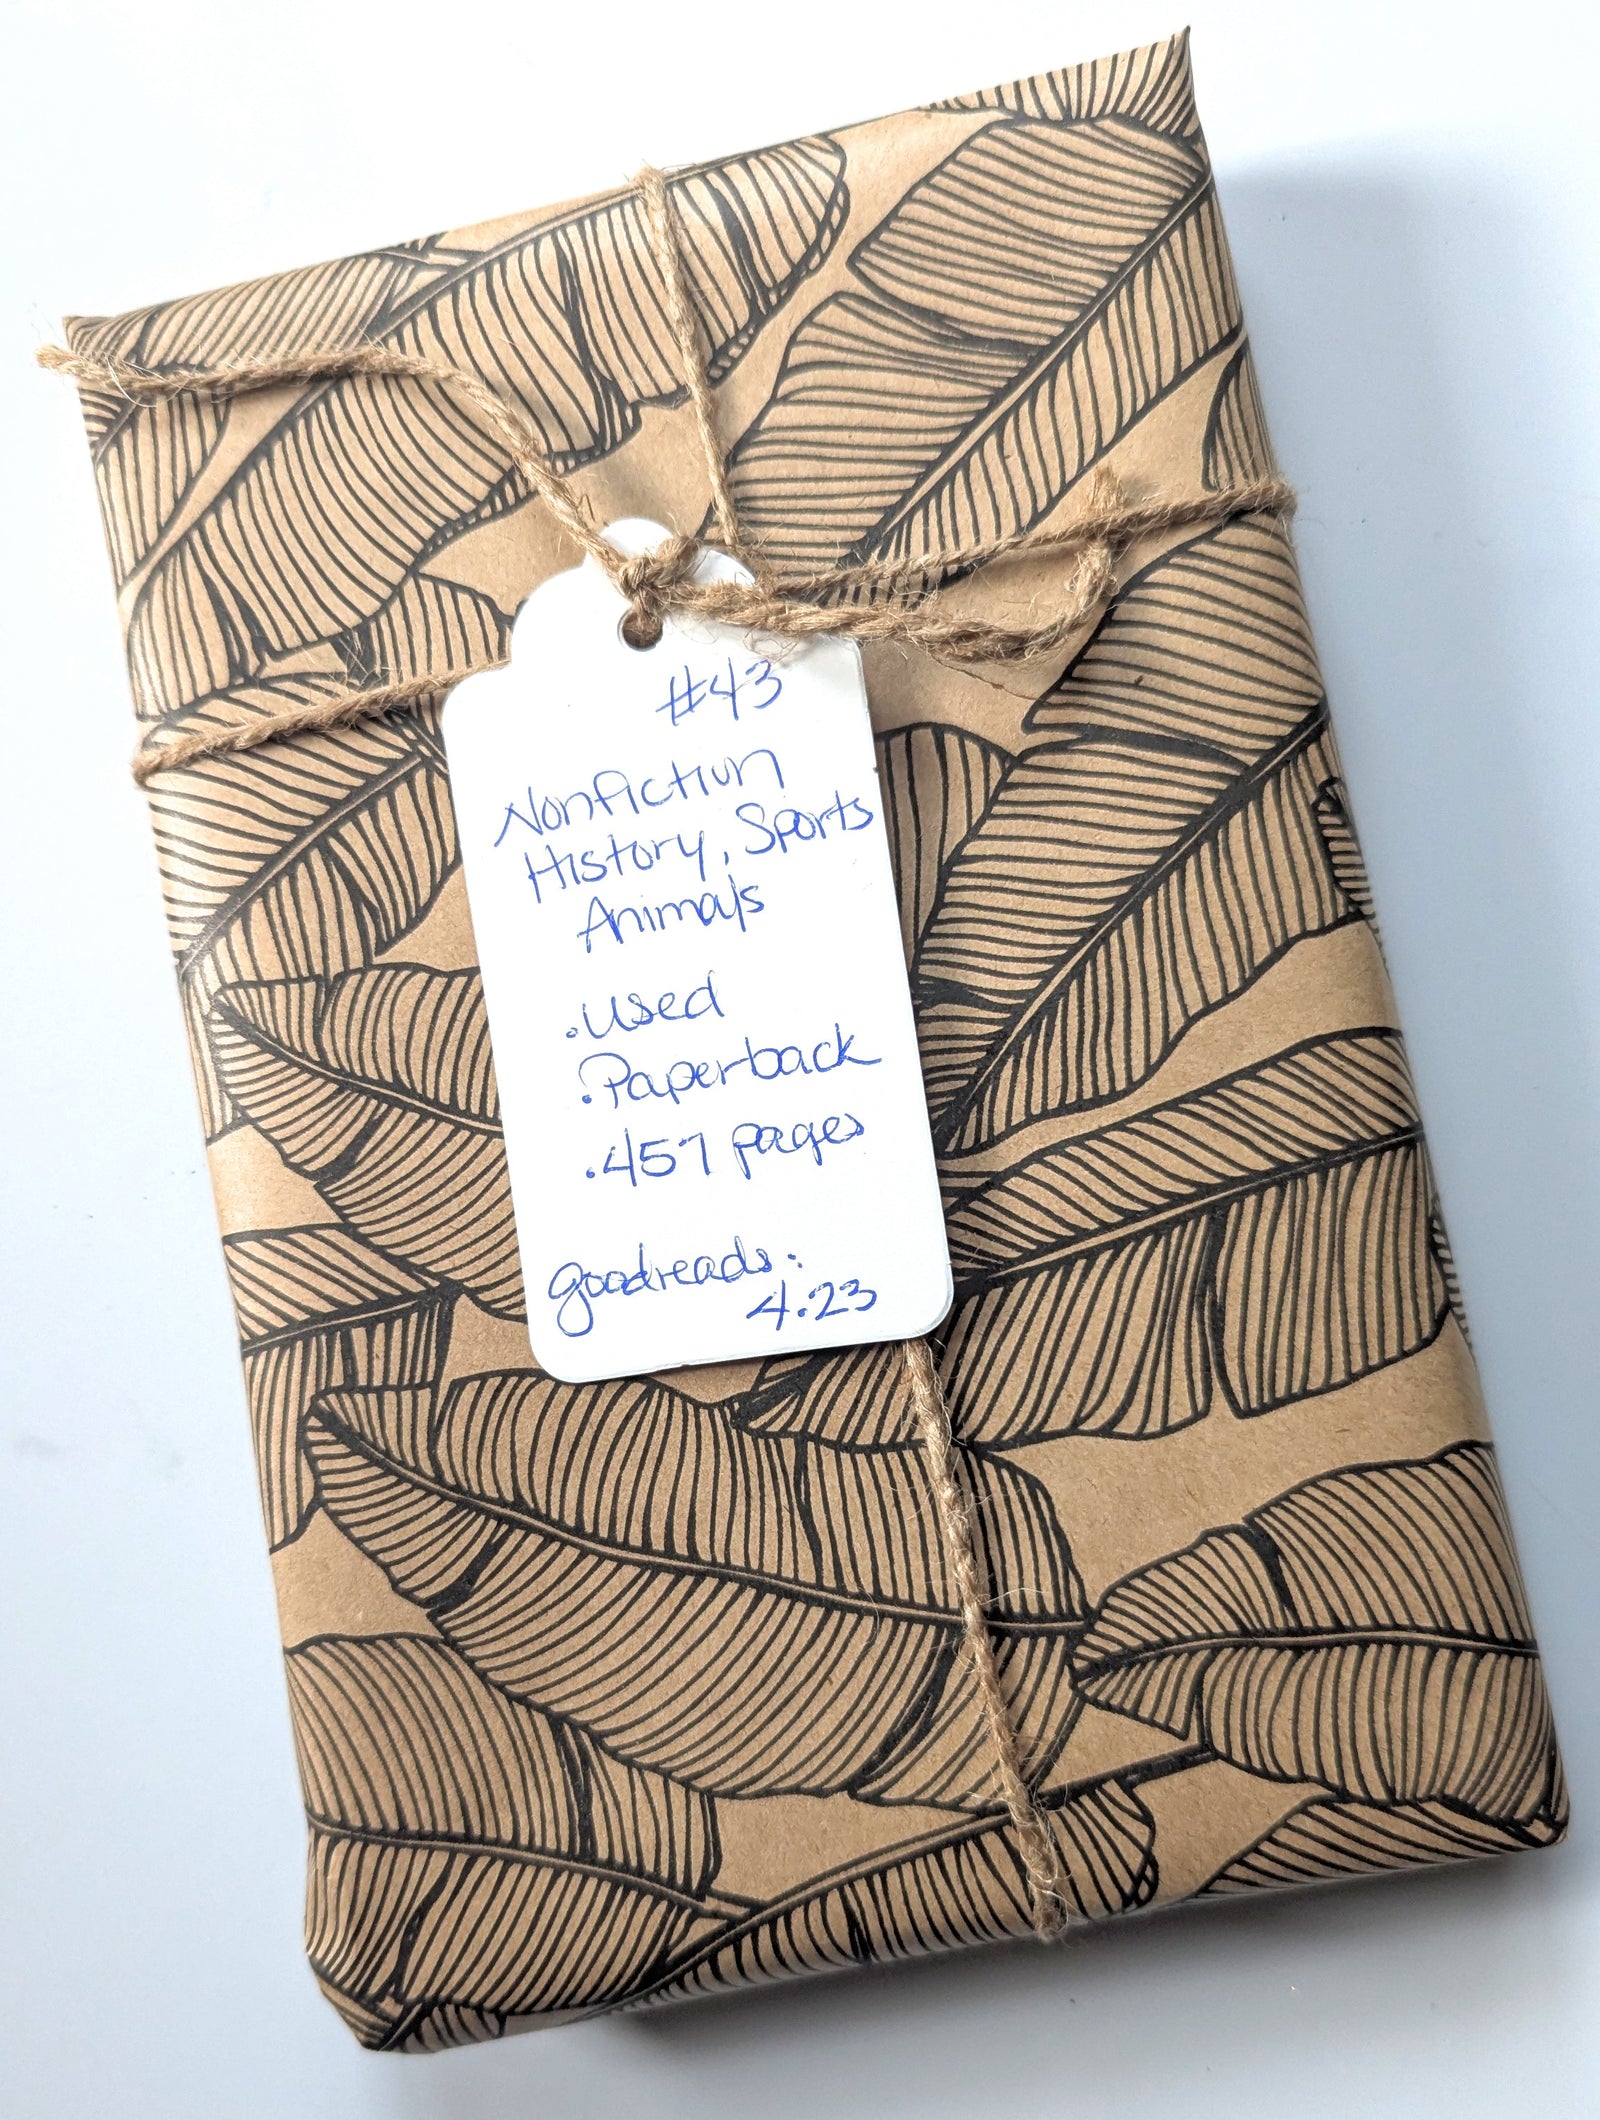 #43
Nonfiction
History, Sports
Animals
.Used
.Paperback
.457 pages
goodreads:
4.23